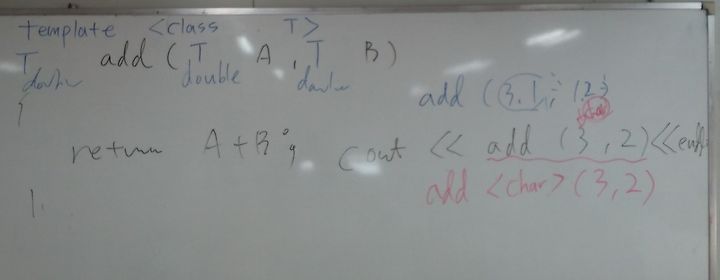 template <class T>
T add (T A, T B)
double double double
{
add (3.1, 1.2)
return A+B;
cout << add (3,2)<<endl
add <char> (3,2)
}